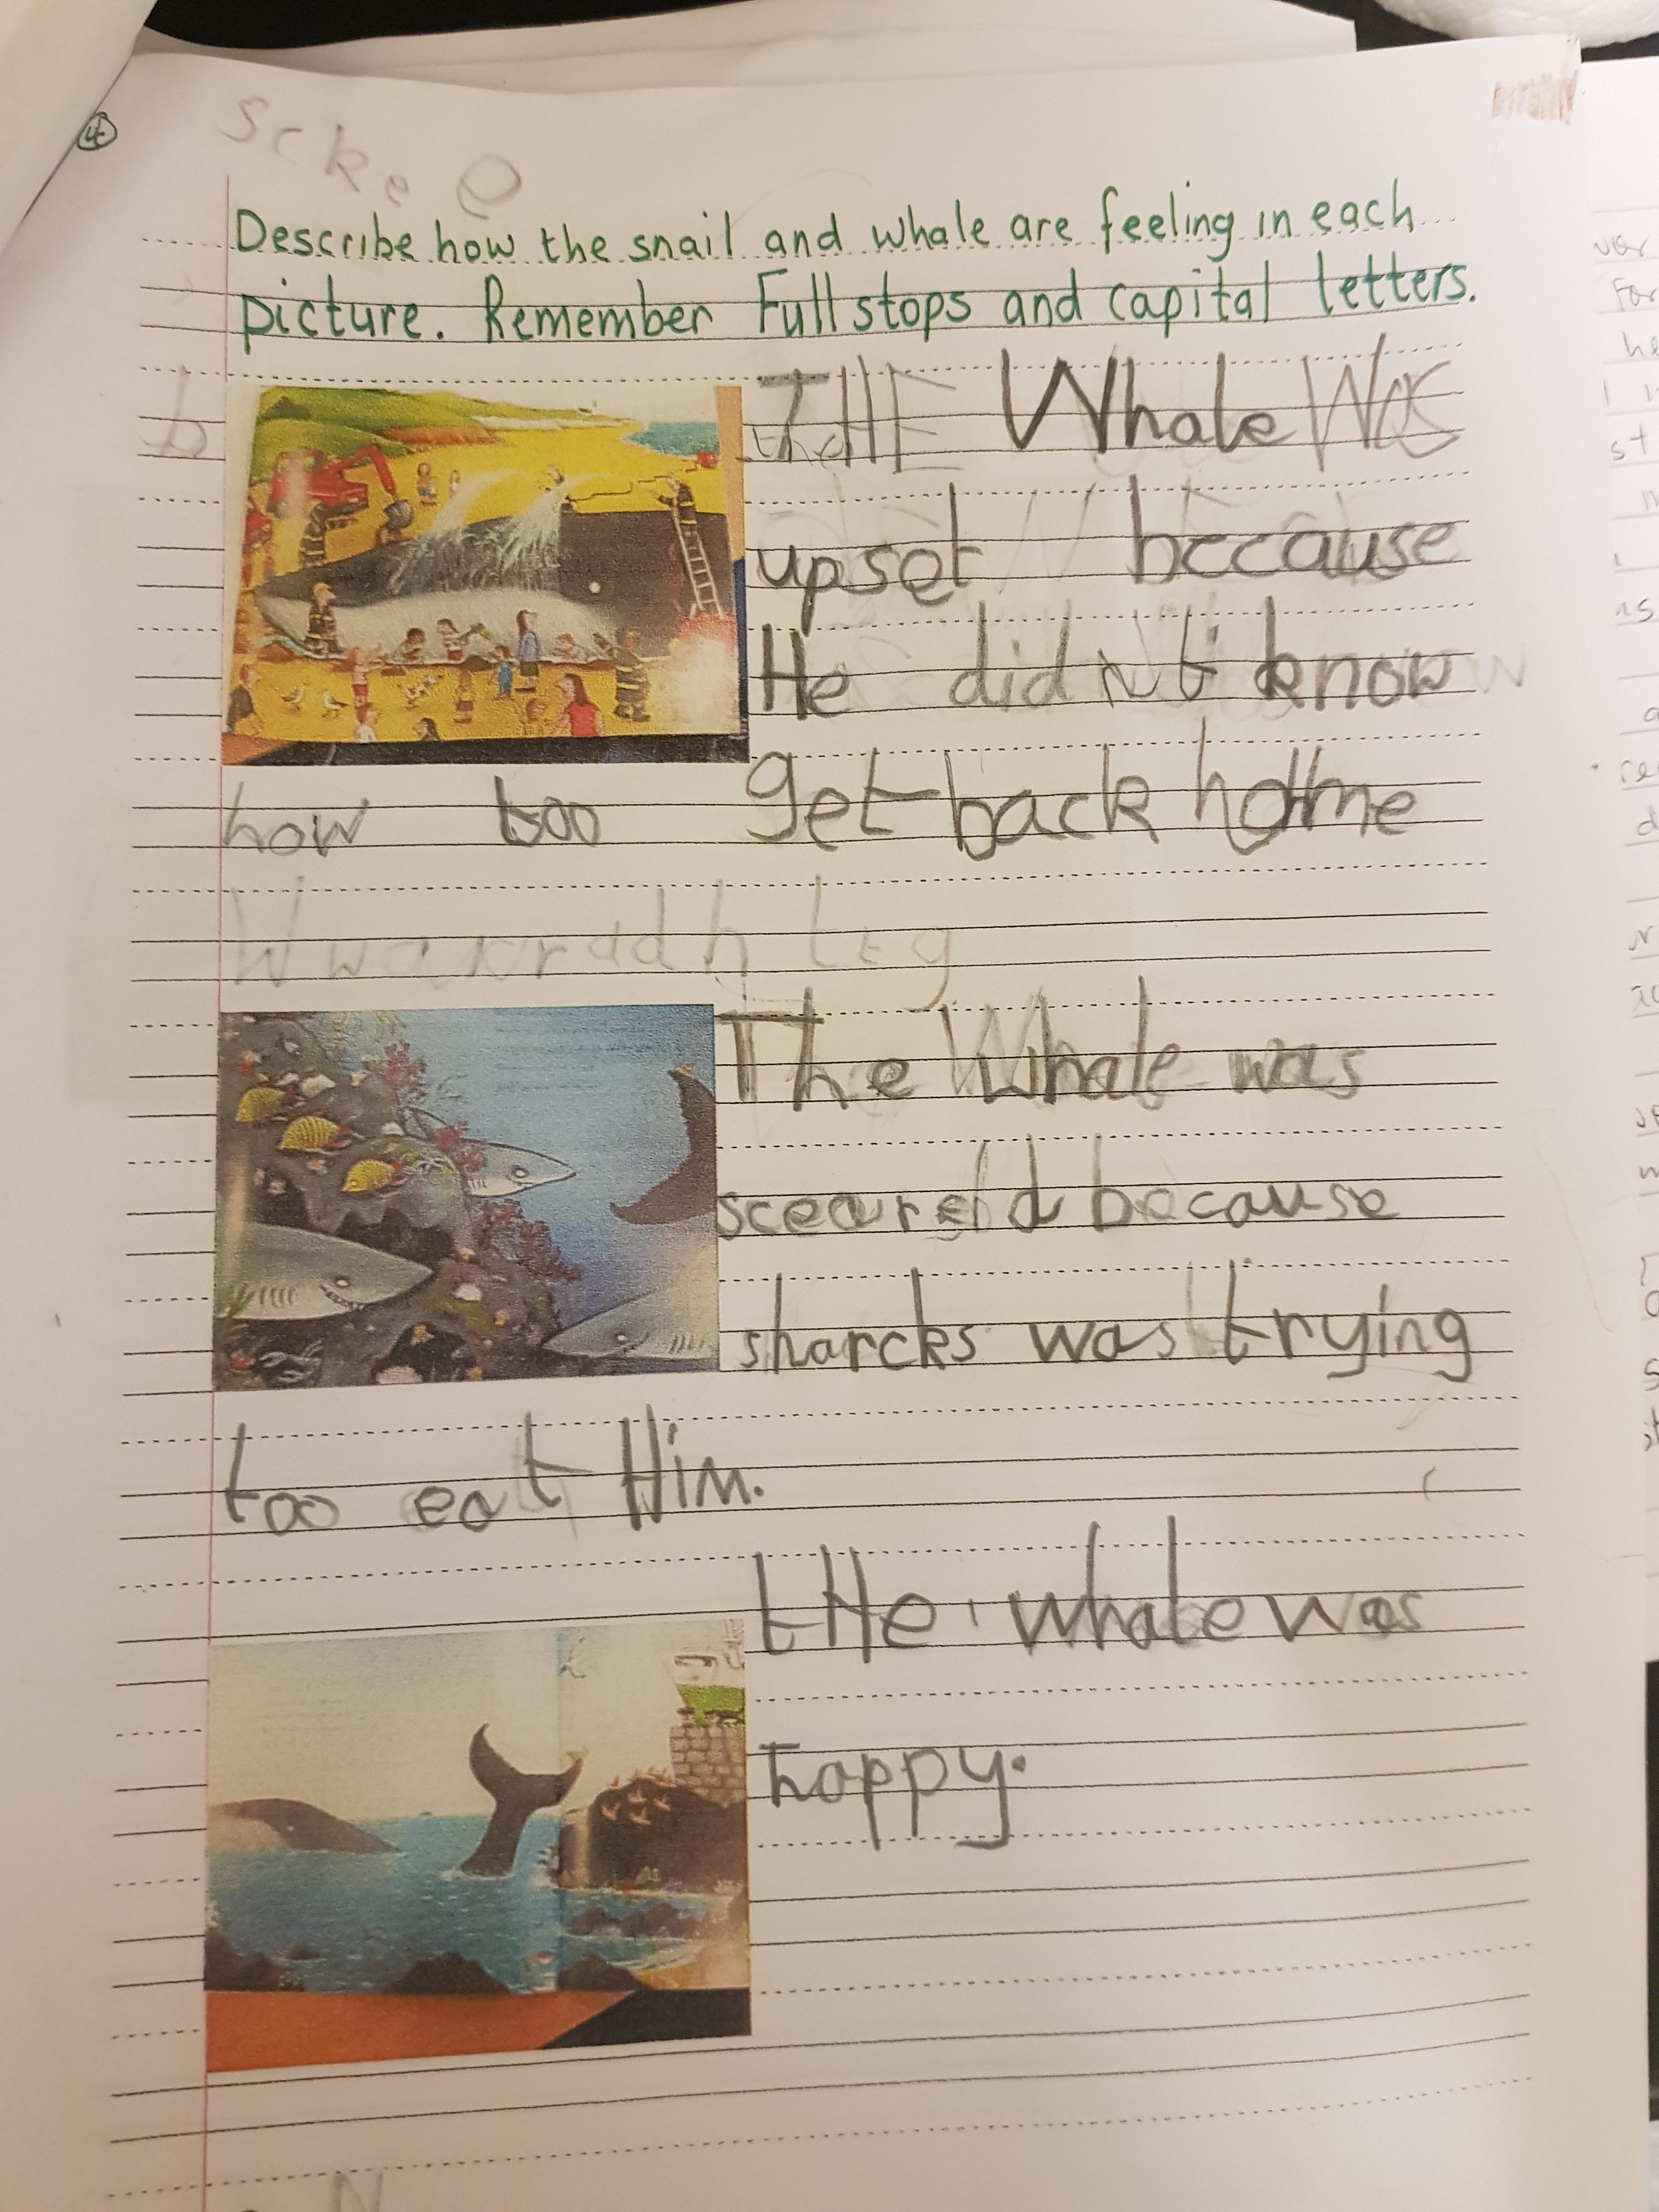 Describe how the snail and whale are feeling in each
picture. Remember Full stops and capital letters.
THE Whale Was
upset because
He didn't know
how too get back home
The Whale was
sceared because
sharcks was trying
too eat Him.
tHe whale was
happy.